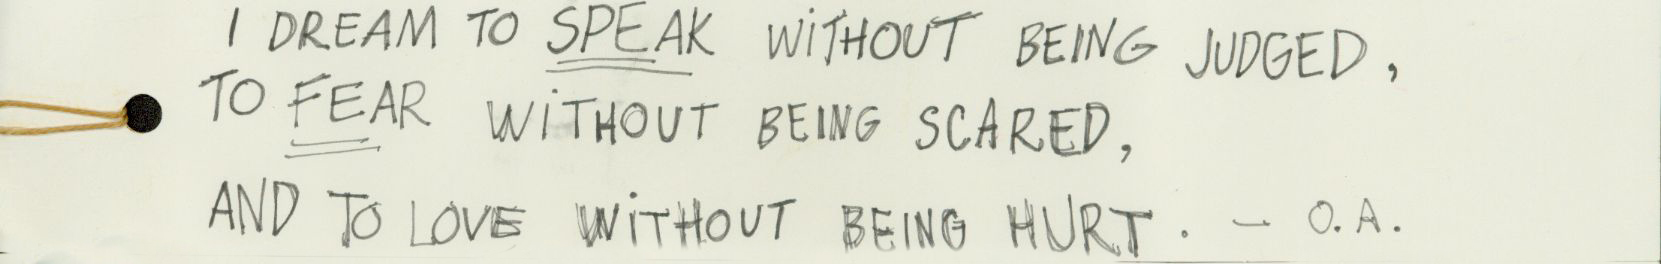 I DREAM TO SPEAK WiTHOUT BEING JUDGED,
TO FEAR WiTHOUT BEING SCARED,
AND TO LOVE WiTHOUT BEING HURT. – O.A.